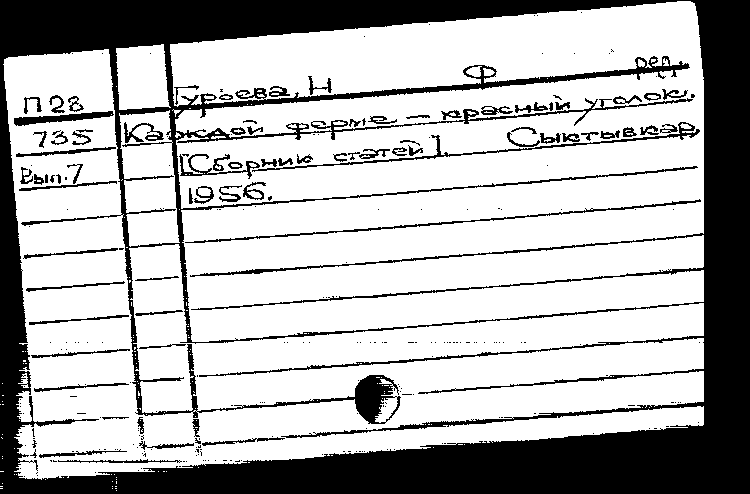 П 28 Гурьева, Н Ф ред.
735 Каждой ферме – красный уголок.
Вып. 7 [Сборник статей]. Сыктывкар,
1956.